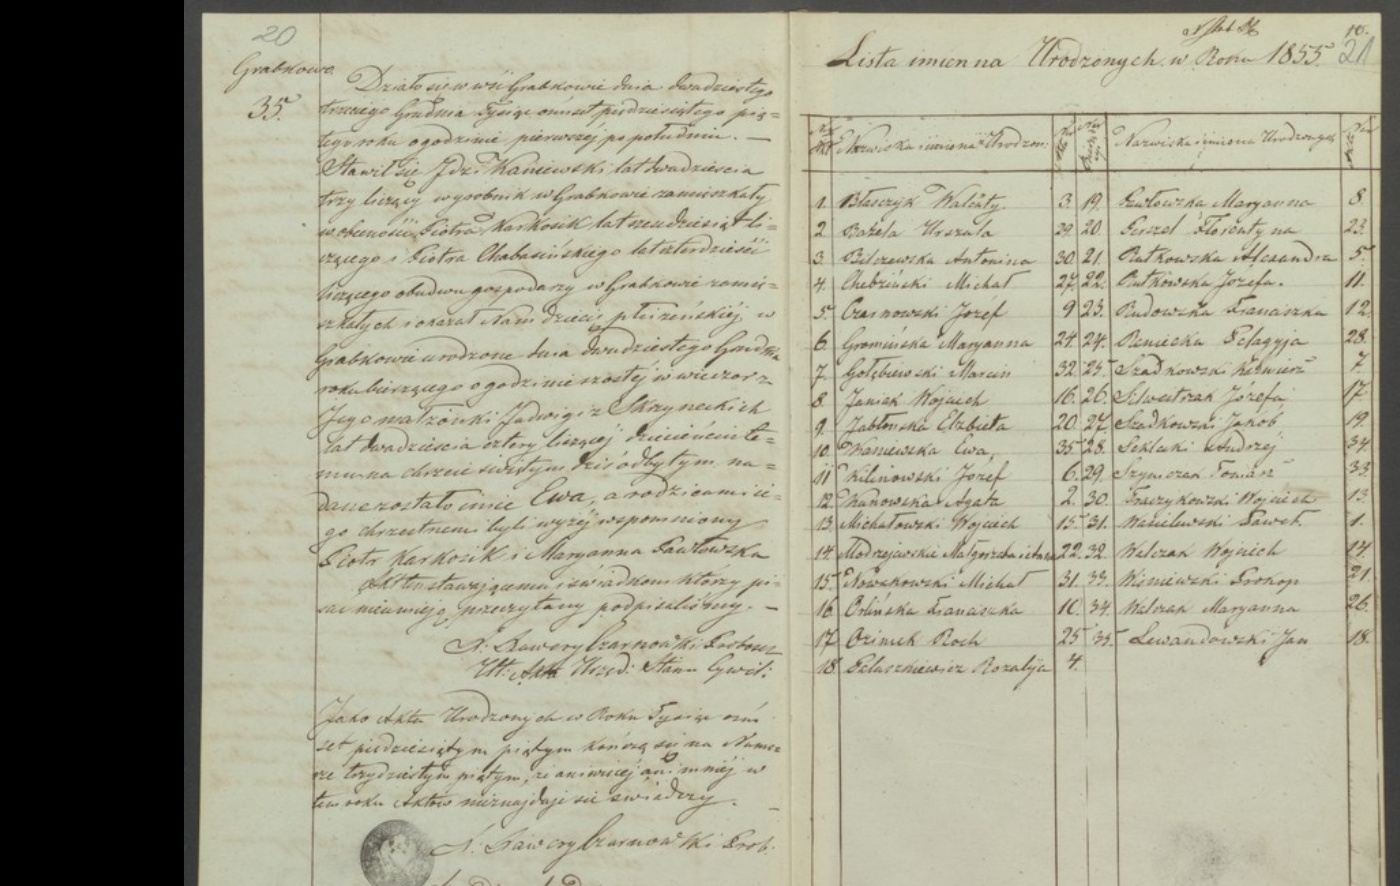 20
Grabkowo
35.
Działo się w wsi Grabkowie dnia dwudziestego
trzeciego Grudnia Tysiąc ośmset pięćdziesiątego pią=
tego roku o godzinie pierwszéj po południu. —
Stawił się Jdzi Kaniewski lat dwadzieścia
trzy liczący wyrobnik w Grabkowie zamieszkały
w obecności Piotra Karkosik lat sześćdziesiąt li=
czącego i Piotra Chabasińskiego lat czterdzieści
liczącego obudwu gospodarzy w Grabkowie zamie=
szkałych i okazał Nam dziecię płci żeńskiéj w
Grabkowie urodzone dnia dwudziestego Grudnia
roku bieżącego o godzinie szóstéj w wieczór z
Jego małżonki Jadwigi z Skrzyneckich
lat dwadzieścia cztery liczącéj dziecięciu te=
mu na chrzcie świętym dziś odbytym na=
dane zostało imie Ewa, a rodzicami je=
go chrzestnemi byli wyżéj wspomniony
Piotr Karkosik i Maryanna Pawłowska
Akt ten stawającemu i świadkom którzy pi=
sać nieumieją przeczytany podpisaliśmy. —
X. Xawery Czarnowski Probosz
Utr: Akta Urzęd: Stanu Cywil:
Jako Akta Urodzonych w Roku Tysiąc ośm
set pięćdziesiątym piątym kończą się na Nume=
rze trzydziestym piątym, że ani więcéj ani mniéj w
tem roku Aktów nieznajduje się świadczy. —
X. Xawery Czarnowski Prob.
10.
21
Lista imienna Urodzonych w Roku 1855
Nazwiska i imiona Urodzon: Nazwiska i imiona Urodzonych
1. Błaszczyk Walenty 3. 19. Pawłowska Maryanna 8.
2. Bazela Urszula 29. 20. Perszel Florentyna 23.
3. Bilczewska Antonina 30. 21. Rutkowska Alexandra 5.
4. Chebziński Michał 27. 22. Rutkowska Jozefa. 11.
5. Czarnowski Józef 9 23. Rudowska Franciszka 12.
6. Gromińska Maryanna 24. 24. Pelagyja 28.
7. Gołębiewski Marcin 32. 25. Szadkowski 7.
8. Janiak Wojciech 16. 26. Józefa 17.
9. Jabłońska Elżbieta 20. 27. Szadkowski Jakób 19.
10. Kaniewska Ewa, 35. 28. Andrzéj 34.
11 Kilinowski Józef 6. 29. Szymczak Tomasz 33.
12. Kunowska Agata 2. 30. Wojciech 13.
13. Michałowski Wojciech 15. 31. Wasielewski Paweł. 1.
14. Modrzejewskie Małgorzata i 22. 32. Walczak Wojciech 14.
15. Nowakowski Michał 31. 33. Wiśniewski Prokop 21.
16. Orlińska Franciszka 10. 34. Walczak Maryanna 26.
17. Ozimek Roch 25 35. Lewandowski Jan 18.
18. Peluszkiewicz Rozalija 4.